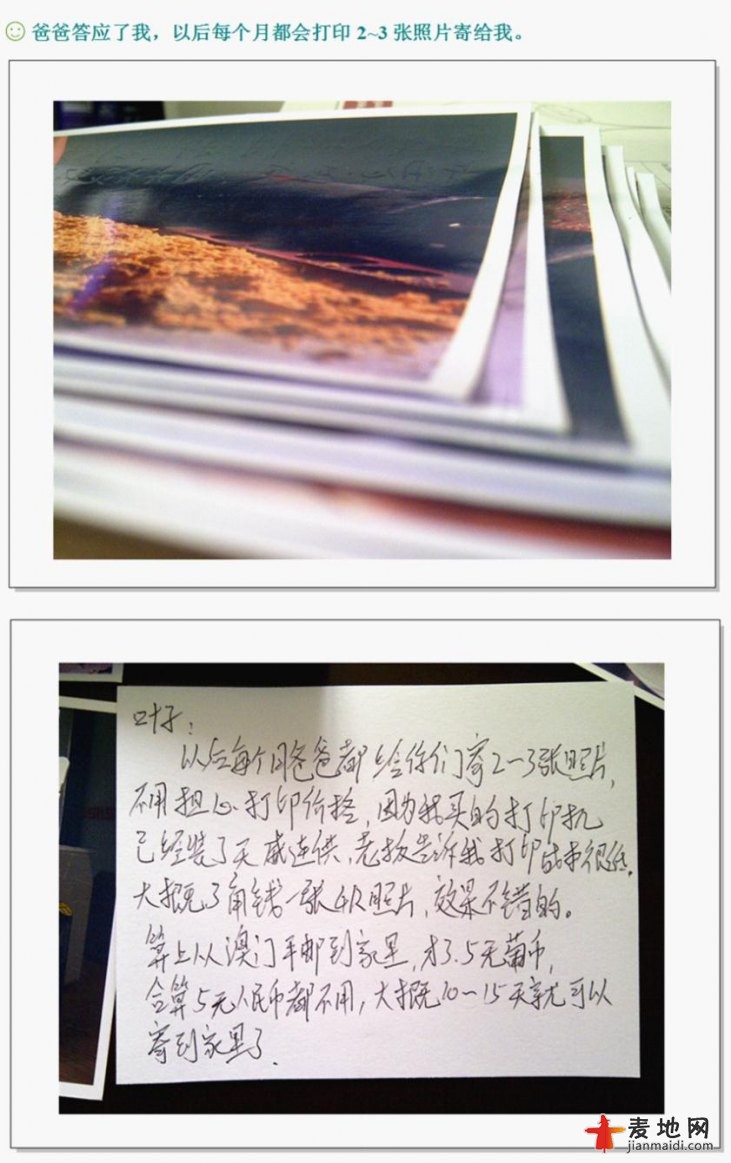 爸爸答应了我，以后每个月都会打印 2~3 张照片寄给我。
叶子：
以后每个月爸爸都给你们寄2~3张照片，
不用担心打印价格，因为我买的打印机
已经装了天威连供，老板告诉我打印成本很低。
大概3角钱一张4R照片，效果不错的。
算上从澳门平邮到家里，才3.5元葡币，
合算5元人民币都不用，大概10~15天就可以
寄到家里了.
麦地网
jianmaidi.com